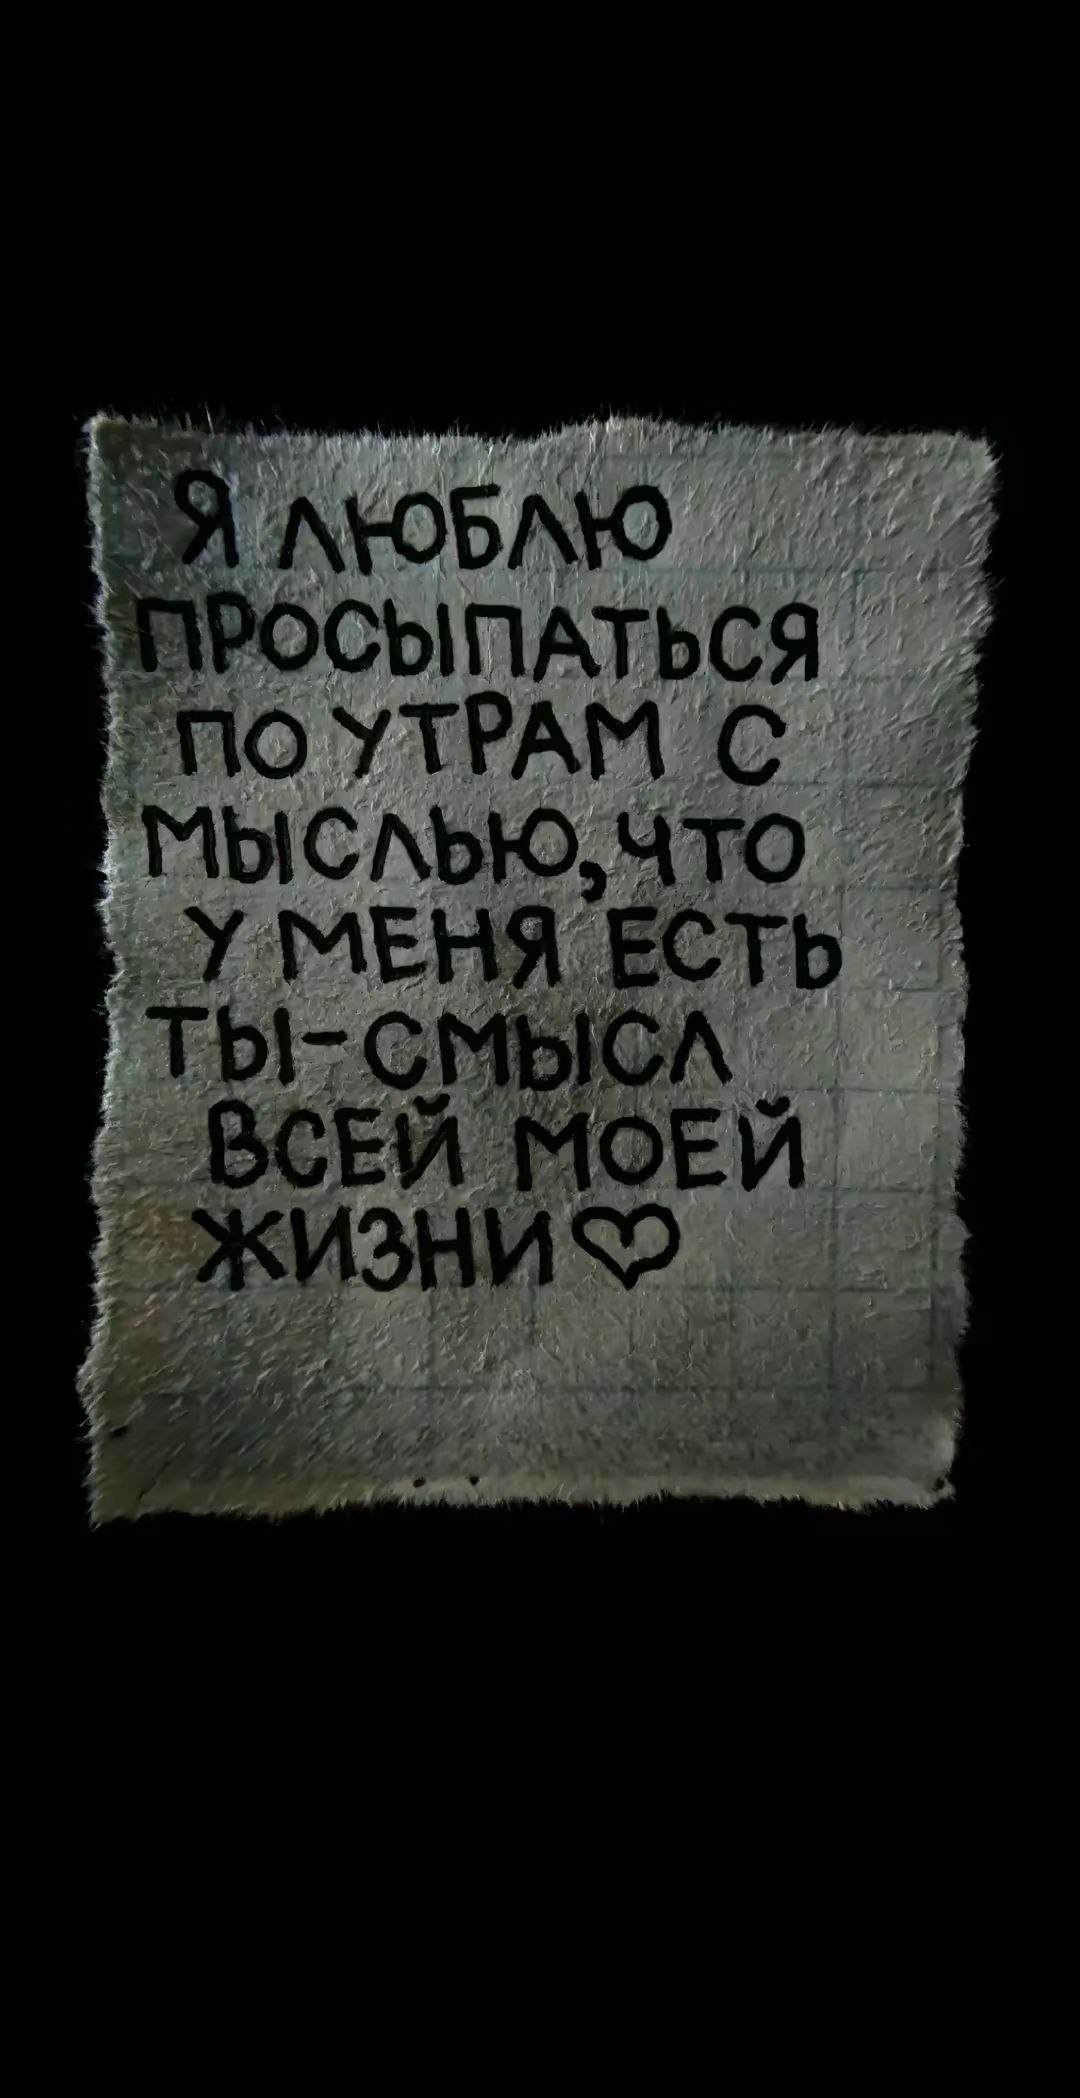 Я ЛЮБЛЮ
ПРОСЫПАТЬСЯ
ПО УТРАМ С
МЫСЛЬЮ, ЧТО
У МЕНЯ ЕСТЬ
ТЫ-СМЫСЛ
ВСЕЙ МОЕЙ
ЖИЗНИ♡